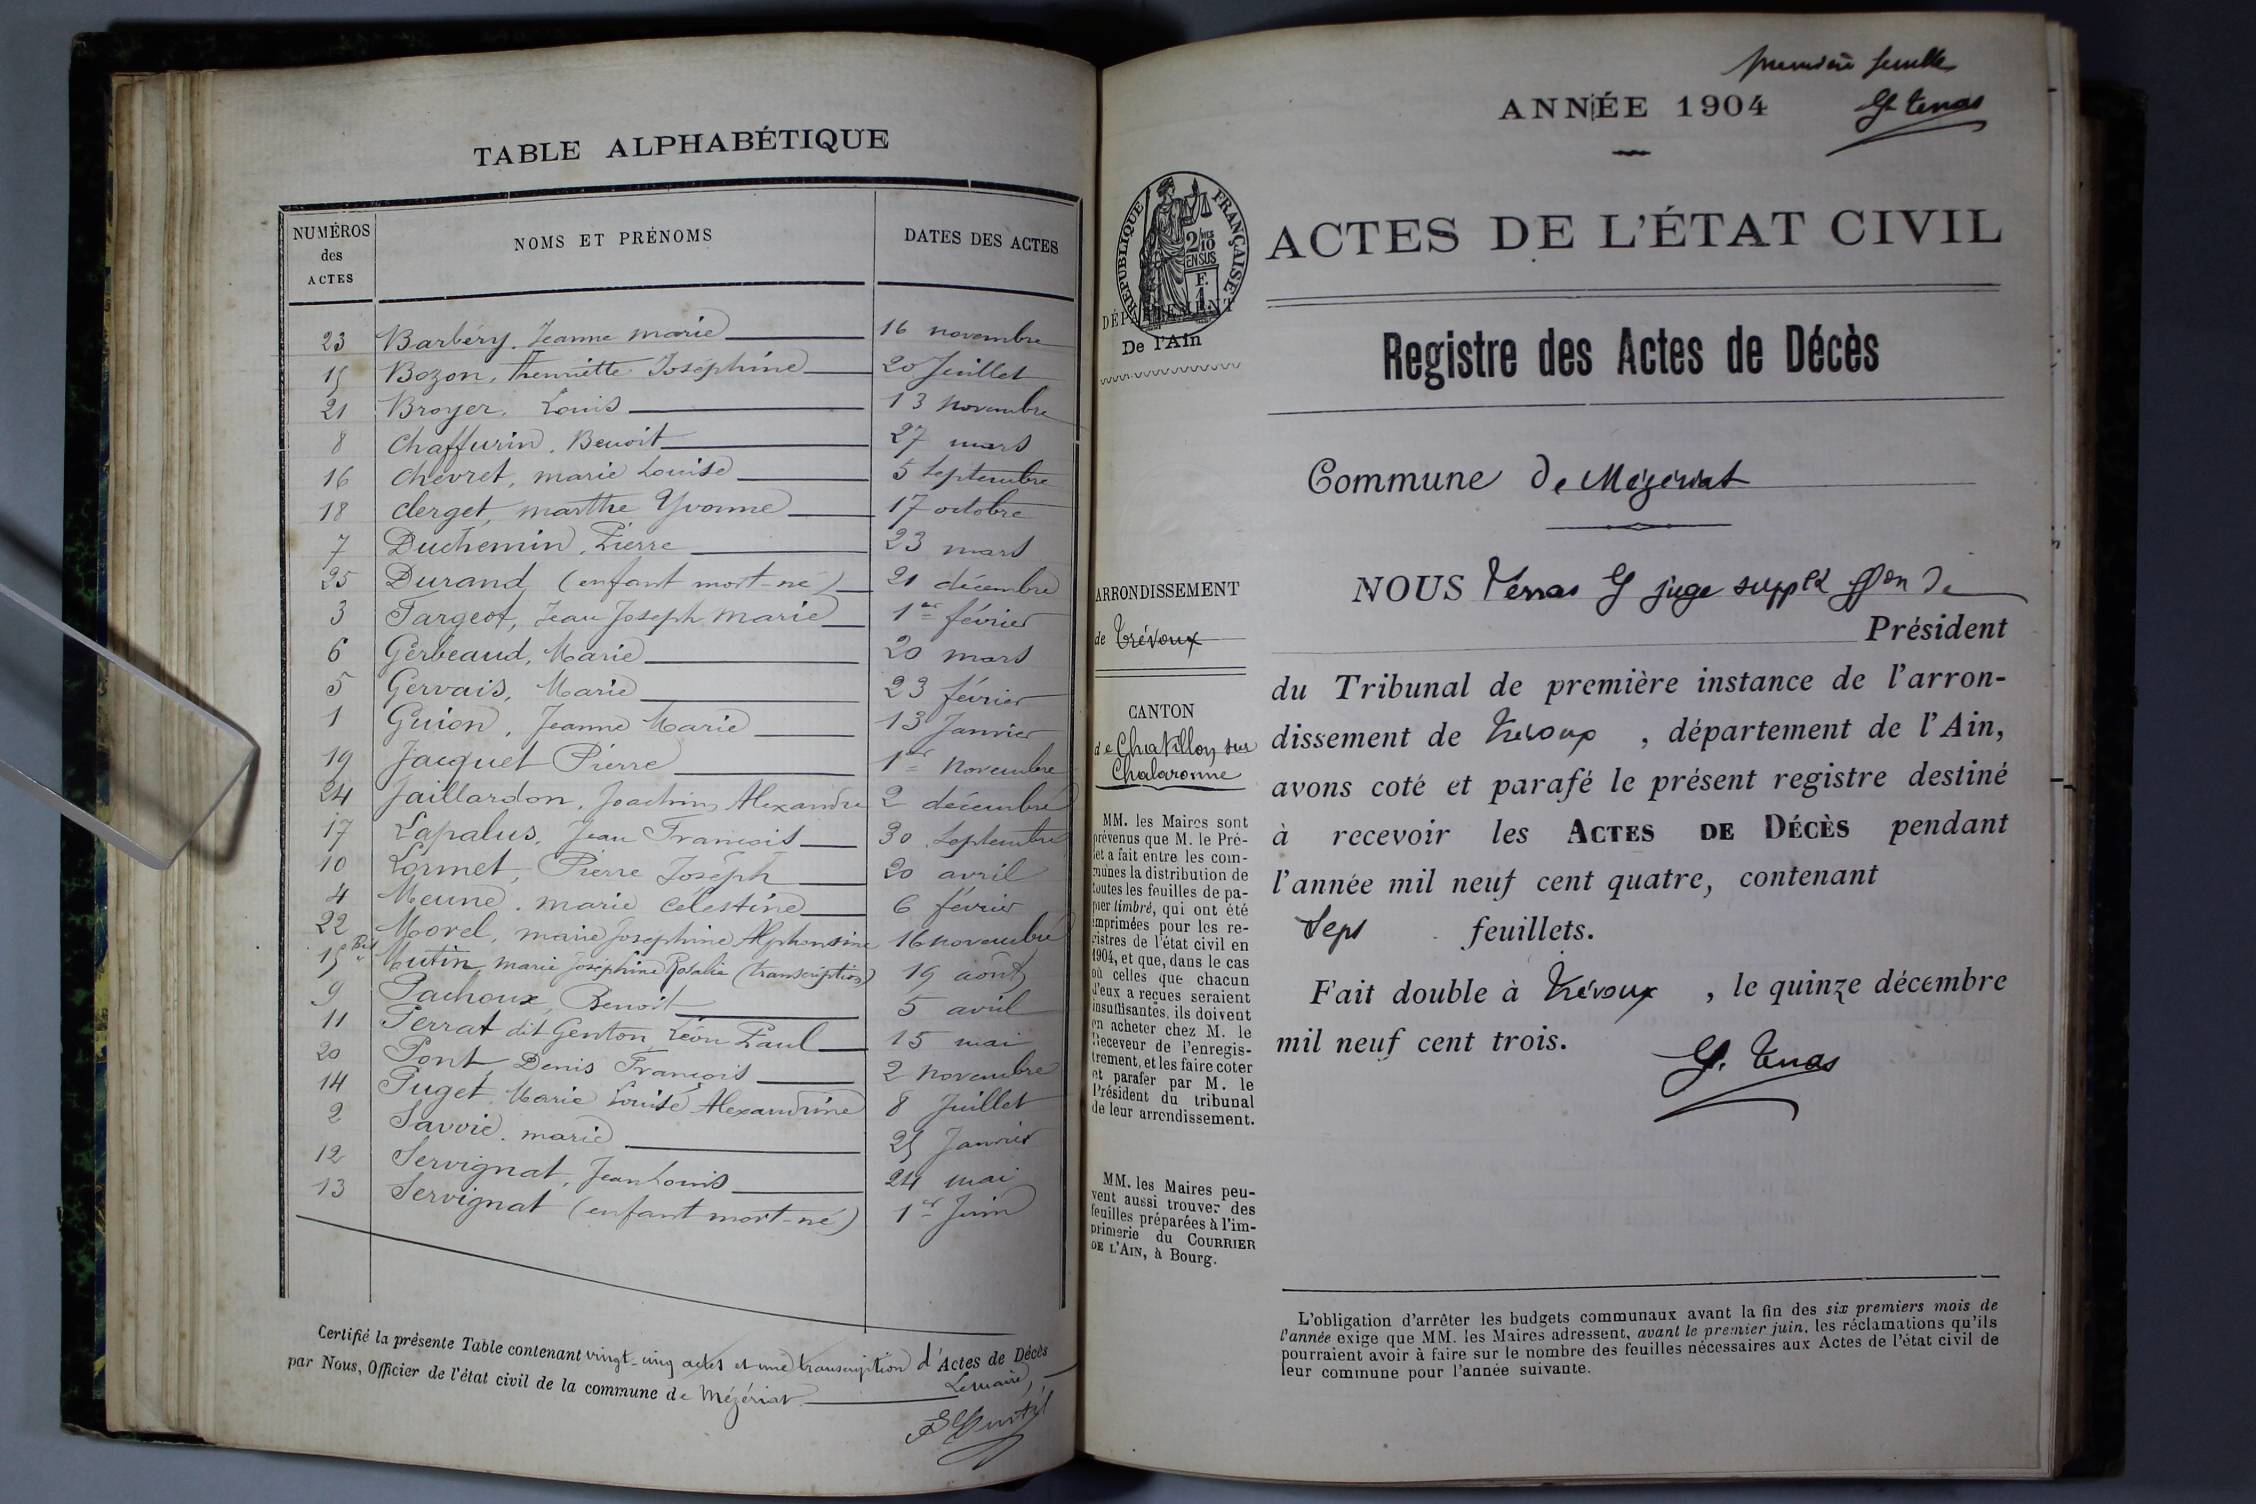 TABLE ALPHABÉTIQUE
NUMÉROS des ACTES NOMS ET PRÉNOMS DATES DES ACTES
23 Barbéry, Jeanne marie 16 novembre
15 Bozon, Henriette Joséphine 20 Juillet
21 Broyer, Louis 13 novembre
8 Chaffurin, Benoit 27 mars
16 Chevret, marie Louise 5 Septembre
18 Clerget, marthe Yvonne 17 octobre
7 Duchemin, Pierre 23 mars
25 Durand (enfant mort-né) 21 décembre
3 Fargeot, Jean Joseph marie 1er février
6 Gerbeaud, Marie 20 mars
5 Gervais, Marie 23 février
1 Guion, Jeanne Marie 13 Janvier
19 Jacquet Pierre 1er Novembre
24 Jaillardon, Joachim Alexandre 2 décembre
17 Lapalus, Jean François 30 Septembre
10 Lormet, Pierre Joseph 20 avril
4 Meune, marie Célestine 6 février
22 Morel, marie Joséphine Alphonsine 16 novembre
15 Bis Mutin, marie Joséphine Rosalie (transcription) 19 août
9 Pachoux, Benoit 5 avril
11 Perrat dit Genton, Léon Paul 15 mai
20 Pont, Denis François 2 Novembre
14 Puget, Marie Louise Alexandrine 8 Juillet
2 Savoie, marie 25 Janvier
12 Servignat, Jean Louis 24 mai
13 Servignat (enfant mort-né) 1er Juin
Certifié la présente Table contenant vingt-cinq actes et une transcription d'Actes de Décès
par Nous, Officier de l'état civil de la commune de Mézériat
Le maire,
première feuille
G. Tenas
ANNÉE 1904
RÉPUBLIQUE FRANÇAISE
2/10
EN SUS
F.
1
DÉPARTEMENT
De l'Ain
ACTES DE L'ÉTAT CIVIL
Registre des Actes de Décès
Commune de Mézériat
ARRONDISSEMENT
de Trévoux
CANTON
de Chatillon sur
Chalaronne
MM. les Maires sont
prévenus que M. le Pré-
fet a fait entre les com-
munes la distribution de
toutes les feuilles de pa-
pier timbré, qui ont été
imprimées pour les re-
gistres de l'état civil en
1904, et que, dans le cas
où celles que chacun
d'eux a reçues seraient
insuffisantes, ils doivent
en acheter chez M. le
Receveur de l'enregis-
trement, et les faire coter
et parafer par M. le
Président du tribunal
de leur arrondissement.
MM. les Maires peu-
vent aussi trouver des
feuilles préparées à l'im-
primerie du COURRIER
DE L'AIN, à Bourg.
NOUS Tenas G juge supplt ffon de
Président
du Tribunal de première instance de l'arron-
dissement de Trévoux , département de l'Ain,
avons coté et parafé le présent registre destiné
à recevoir les ACTES DE DÉCÈS pendant
l'année mil neuf cent quatre, contenant
Sept feuillets.
Fait double à Trévoux , le quinze décembre
mil neuf cent trois.
G. Tenas
L'obligation d'arrêter les budgets communaux avant la fin des six premiers mois de
l'année exige que MM. les Maires adressent, avant le premier juin, les réclamations qu'ils
pourraient avoir à faire sur le nombre des feuilles nécessaires aux Actes de l'état civil de
leur commune pour l'année suivante.